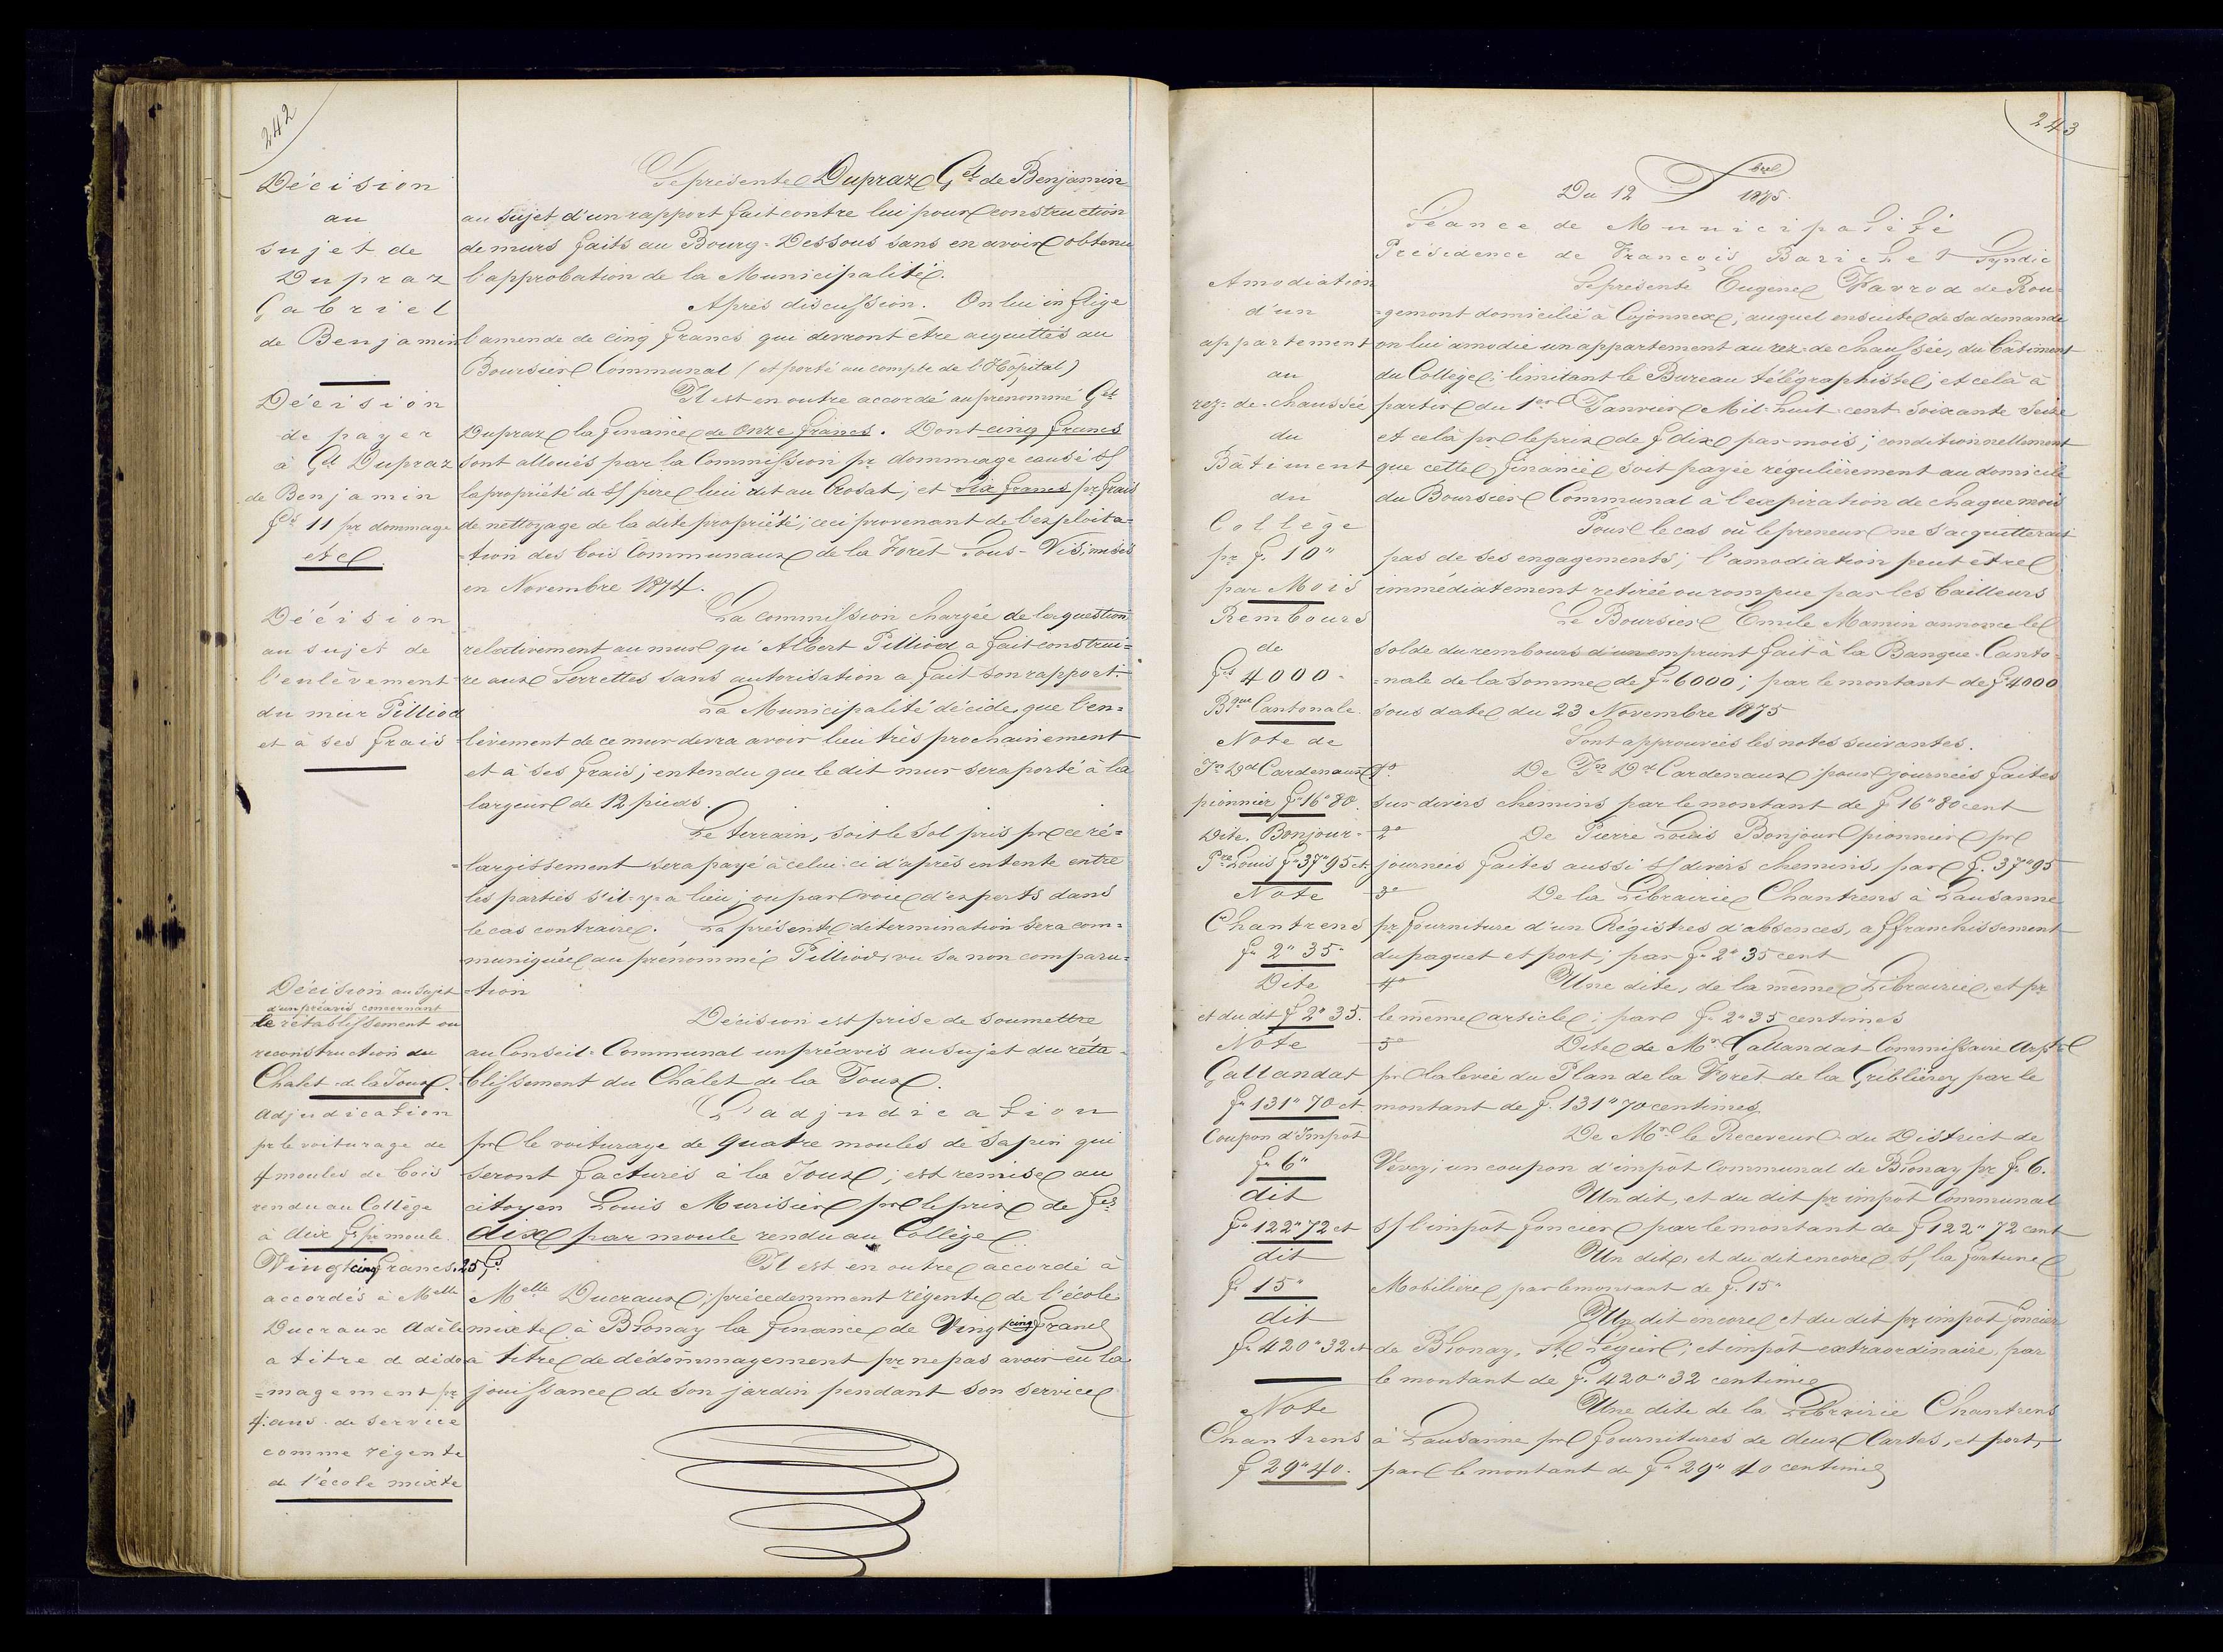 242
Décision
au
sujet de
Dupraz
Gabriel
de Benjamin
Décision
de payer
à Gel Dupraz
de Benjamin
fcs 11 pr dommage
etc
Décision
au sujet de
l'enlèvement
du mur Pilliod
et à ses frais
Décision au sujet
d'un préavis concernant
le rétablissement ou
reconstruction du
Châlet de la Joux.
Adjudication
pr le voiturage de
4 moules de bois
rendu au Collège
à dix f. pr moule.
Vingt cinq francs. 25 fs.
accordés à Melle
Ducraux Adèle
a titre de dédo
=magement pr
4 ans de service
comme régente
de l'école mixte
Se présente Dupraz Gel de Benjamin
au sujet d'un rapport fait contre lui pour construction
de murs faits au Bourg-Dessous sans en avoir obtenu
l'approbation de la Municipalité.
Après discussion. On lui inflige
l'amende de cinq francs qui devront être acquittés au
Boursier Communal (et porté au compte de l'Hôpital)
Il est en outre accordé au prénommé Gel
Dupraz la finance de Onze francs. Dont cinq francs
sont alloués par la Commission pr dommage causé s/
la propriété de s/ père lieu dit au Crosat; et Six francs pr frais
de nettoyage de la dite propriété; ceci provenant de l'exploita=
=tion des bois Communaux de la Forêt Sous-Vis; misés
en Novembre 1874.
La commission chargée de la question
relativement au mur qu'Albert Pilliod a fait construi=
re aux Serrettes sans autorisation a fait son rapport.
La Municipalité décide, que l'en=
=lèvement de ce mur devra avoir lieu très prochainement
et à ses frais; entendu que le dit mur sera porté à la
largeur de 12 pieds.
Le terrain, soit le sol pris pr ce ré=
=largissement sera payé à celui-ci d'après entente entre
les parties s'il-y-a lieu; ou par voie d'experts dans
le cas contraire. La présente détermination sera com=
muniquée au prénommé Pilliod, vu sa non comparu=
=tion
Décision est prise de soumettre
au Conseil-Communal un préavis au sujet du réta=
blissement du Châlet de la Joux.
L'adjudication
pr le voiturage de quatre moules de sapin qui
seront facturés à la Joux; est remise au
citoyen Louis Murisier pr le prix de fcs
dix par moule rendu au Collège
Il est en outre accordé à
Melle Ducraux; précédemment régente de l'école
mixte à Blonay la finance de Vingt cinq francs
à titre de dédommagement pr ne pas avoir eu la
jouissance de son jardin pendant son service
243
Du 12 Xbre 1875.
Séance de Municipalité
Présidence de François Barichet Syndic
Amodiation
d'un
appartement
au
rez-de-chaussée
du
Bâtiment
du
Collège
pr f. 10"
par Mois
Rembours
de
fs 4000-
Bque Cantonale.
Note de
Jn Dd Cardenaux
pionnier f" 16" 80.
Dite, Bonjour-
Pre Louis f" 37" 95 ct
Note
Chantrens
f" 2" 35-
Dite
et du dit f 2" 35.
Note
Gallandat
f" 131" 70 ct
Coupon d'Impôt
f" 6"
dit
f" 122" 72 ct
dit
f 15"
dit
f" 420" 32 ct
Note
Chantrens
f 29" 40.
Se présente Eugène Favrod de Rou=
=gemont domicilié à Cojonnex; auquel ensuite de sa demande
on lui amodie un appartement au rez-de-chaussée, du bâtiment
du Collège; limitant le Bureau télégraphiste; et celà à
partir du 1er Janvier Mil-huit cent soixante seize
et celà pr le prix de f dix par mois; conditionnellement
que cette finance, soit payée régulièrement au domicile
du Boursier Communal à l'expiration de chaque mois
Pour le cas où le preneur ne s'acquitterait
pas de ses engagements; l'amodiation peut être
immédiatement retirée ou rompue par les bailleurs
Le Boursier Emile Mamin annonce le
solde du rembours d'un emprunt fait à la Banque-Canto=
=nale de la somme de f" 6000; par le montant de f" 4000
sous date du 23 Novembre 1875
Sont approuvées les notes suivantes.
1o De Jn Dd Cardenaux pour journées faites
sur divers chemins par le montant de f 16" 80 cent
2o De Pierre Louis Bonjour pionnier pr
journées faites aussi s/ divers chemins, par f. 37" 95
3o De la Librairie Chantrens à Lausanne
pr fourniture d'un Régistres d'absences, affranchissement
du paquet et port; par f" 2" 35 cent
4o Une dite, de la même Librairie, et pr
le même article; par f" 2" 35 centimes
5o Dite de Mr Gallandat Commissaire
pr la levée du Plan de la Forêt de la par le
montant de f. 131" 70 centimes
De Mr le Receveur du District de
Vevey; un coupon d'impôt Communal de Blonay pr f" 6.
Un dit, et du dit pr impôt Communal
s/ l'impôt foncier par le montant de f 122" 72 cent
Un dit, et du dit encore s/ la fortune
Mobilière par le montant de f. 15"
Un dit encore et du dit pr impôt foncier
de Blonay, St Légier; et impôt extraordinaire, par
le montant de f. 420" 32 centimes
Une dite de la Librairie Chantrens
à Lausanne pr fournitures de deux Cartes, et port,
par le montant de f" 29" 40 centimes